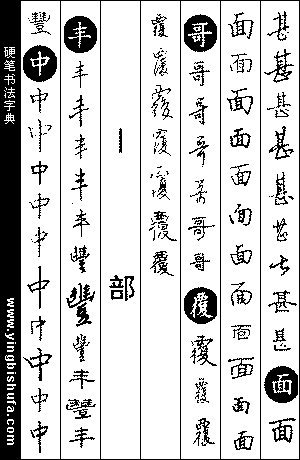 甚甚甚甚甚甚甚甚甚面面
面面面面面面面面面面面面
哥哥哥哥哥哥哥覆覆覆覆
覆覆覆覆覆覆覆
丨部
丰丰丰丰丰丰豐豐豐丰豐丰
豐中中中中中中中中中中中
硬笔书法字典
www.yingbishufa.com